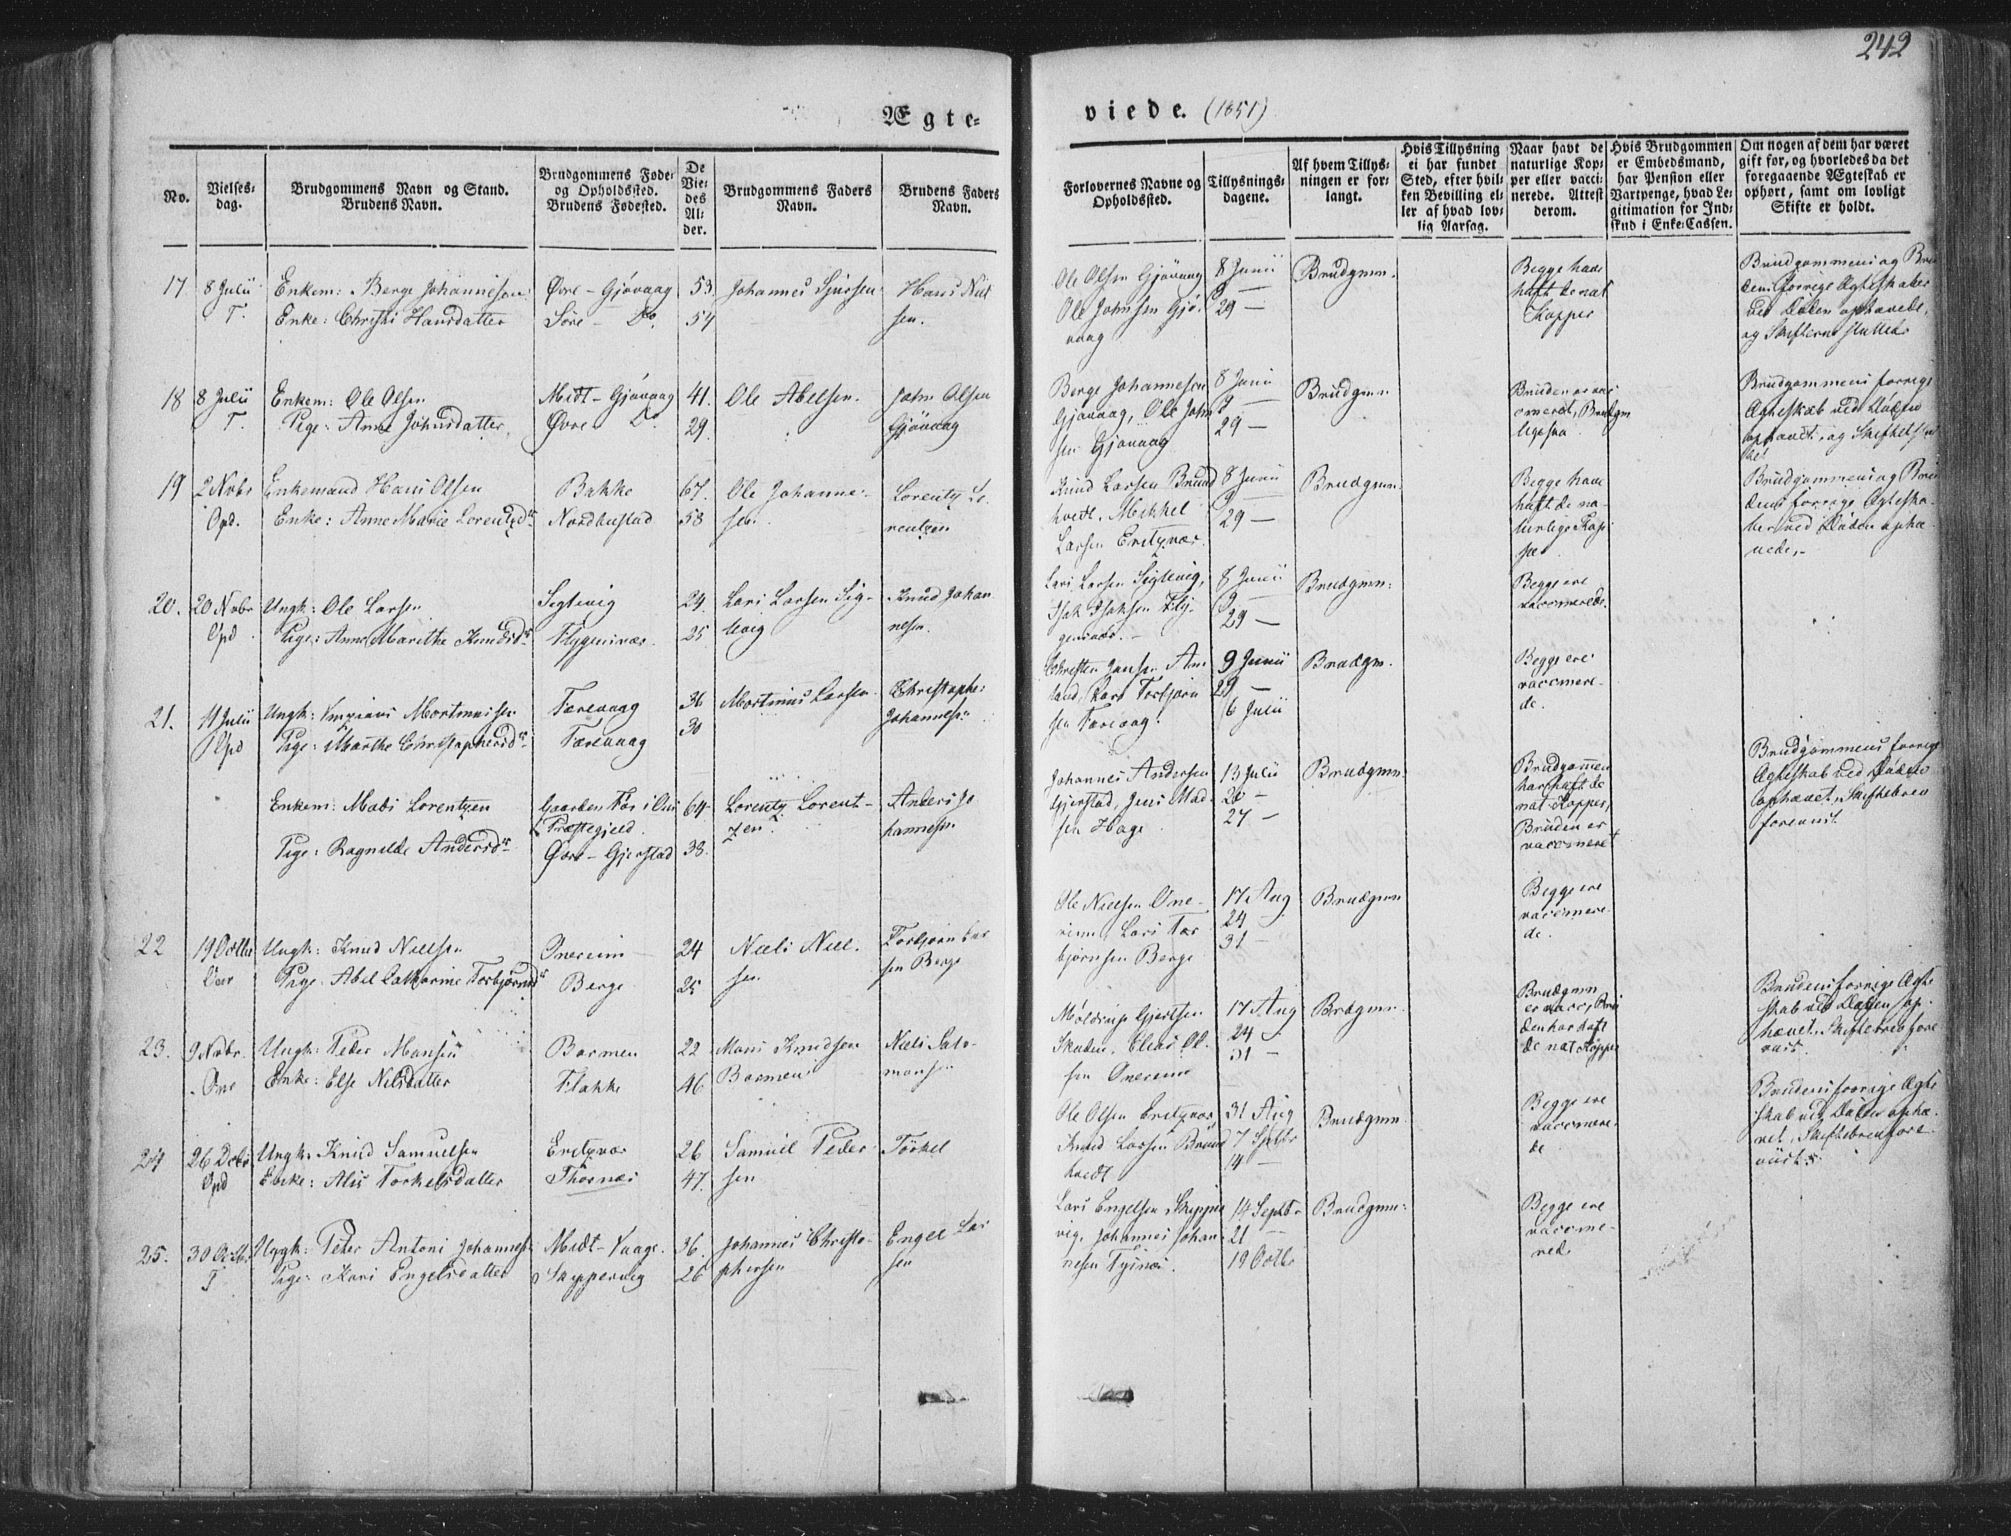 242
Ægte=
viede. (1851)
No.
Vielses=
dag.
Brudgommens Navn og Stand.
Brudens Navn.
Brudgommens Føde=
og Opholdssted.
Brudens Fødested.
De
Vie=
des
Al=
der.
Brudgommens Faders
Navn.
Brudens Faders
Navn.
Forlovernes Navne og
Opholdssted.
Tillysnings=
dagene.
Af hvem Tillys=
ningen er for=
langt.
Hvis Tillysning
ei har fundet
Sted, efter hvil=
ken Bevilling el=
ler af hvad lov=
lig Aarsag.
Naar havt de
naturlige Kop=
per eller vacci=
nerede. Attest
derom.
Hvis Brudgommen
er Embedsmand,
har Pension eller
Vartpenge, hvad Le=
gitimation for Ind=
skud i Enke=Cassen.
Om nogen af dem har været
gift før, og hvorledes da det
foregaaende Ægteskab er
ophørt, samt om lovligt
Skifte er holdt.
17
8 Julii
T.
Enkem: Berge Johannesen
Enke: Christi Hansdatter
Øvre - Gjøvaag
Søre - Do.
53.
54
Johannes Sjursen
Hans Niel
sen.
Ole Olsen Gjøvaag
Ole Johnsen Gjø-
vaag
8 Junii
9 —
29 —
Brudgmn.
Begge have
haft de nat
Kopper
Brudgommens og Bru
dens forrige Ægteskaber
ved Døden ophævede,
og Skifterne sluttede
18
8 Julii
T.
Enkem: Ole Olsen
Pige: Anne Johnsdatter,
Midt - Gjøvaag
Øvre Do.
41.
29.
Ole Abelsen.
John Olsen
Gjøvaag
Berge Johannesen
Gjøvaag, Ole John
sen Gjøvaag
8 Junii
9 —
29 —
Brudgmn
Bruden er vac
cineret, Brudgm
ligesaa
Brudgommens forrige
Ægteskab ved Døden
ophævet, og Skiftet slut
tet
19
2 Nvbr
Opd.
Enkemand Hans Olsen
Enke: Anne Marie Lorentzdr
Bakke
Nordhustad
67.
58
Ole Johanne-
sen.
Lorentz Lo
rentzen
Knud Larsen Brand
hvedt, Mikkel
Larsen Eretzvær
8 Junii
9
29 —
Brudgmn
Begge have
haft de na-
turlige Kop
per
Brudgommens og Bru
dens forrige Ægteska-
ber ved Døden ophæ-
vede,-
20.
20 Nvbr
Opd
Ungk: Ole Larsen
Pige: Anne Marethe Knudsdr
Sigtevig
Flygensvær.
24.
25
Lars Larsen Sig-
tevig
Knud Johan
nesen.
Lars Larsen Sigtevig,
Isak Isaksen Fly-
gensvær. -
8 Junii
9 —
29 —
Brudgmn.
Begge ere
vaccinerede.
21.
11 Julii
Opd
Ungk: Martinusen
Pige: Marthe Christophersdr
Torevaag
Torevaag
36
30
Mortinus Larsen
Christopher
Johannesen
Christen Jansen Aa
land, Lars Torbjørn
sen Torevaag.
9 Junii
29 —
6 Julii
Brudgm.
Begge ere
vaccinere-
de.
Enkem: Mads Lorentzen
Pige: Ragnilde Andersdr
Gaarden i Ous
Præstegjeld.
Øvre - Gjerstad
64.
38.
Lorentz Lorent-
zen
Anders Jo
hannesen
Johannes Andersen
Gjerstad, Jens Mad-
sen Hage
13 Julii
20 —
27 —
Brudgmn.
Brudgommen
har haft de
nat Kopper,
Bruden er
vaccineret
Brudgommens forrige
Ægteskab ved Døden
ophævet, Skiftebrev
foreviist.
22
19 Octbr
Ungk: Knud Nielsen
Pige: Abel Cathrine Torbjørnsdr
Onereim
Berge
24
25
Niels Niel-
sen
Torbjørn Lar
sen Berge
Ole Nielsen One-
reim, Lars Tor
bjørnsen Berge
17 Aug
24 —
31 —
Brudgmn
Begge ere
vaccinere-
de.
23.
9 Nvbr.
One
Ungk: Peder Monsen
Enke: Else Nilsdatter
Barmen
Flakke
22
46
Mons Knudsen
Barmen
Niels Salo-
monsen
Møldrup Gjertsen
Skuden, Elias Ol-
sen Onereim
17 Aug
24 —
31 —
Brdgmn.
Brudgmn
er vacc, Bru
den har haft
de nat Kopper
Brudens forrige Ægte
skab ved Døden op-
hævet, Skiftebrev fore
viist.
24
26 Dcbr
Opd
Ungk: Knud Samuelsen
Enke: Alis Torkelsdatter
Eretzvær
Thornæs
26
47.
Samuel Peder-
sen
Torkel
Ole Olsen Eretzvær
Knud Larsen Brand
hvedt
31 Aug
7 Septbr
14 —
Brudgmn.
Begge ere
vaccinere-
de
Brudens forrige Ægte
skab ved Døden ophæ-
vet, Skiftebrev fore-
viist.
25.
30 Octbr
T
Ungk: Peter Antoni Johannes
Pige: Kari Engelsdatter
Midt - Vaage.
Skippervig
36.
26
Johannes Christo-
phersen
Engel Lar
sen
Lars Engelsen Skipper
vig, Johannes Johan
nesen Tysnæs.
14 Septbr
21 —
19 Octbr
Brudgmn.
Begge ere
vaccine-
rede